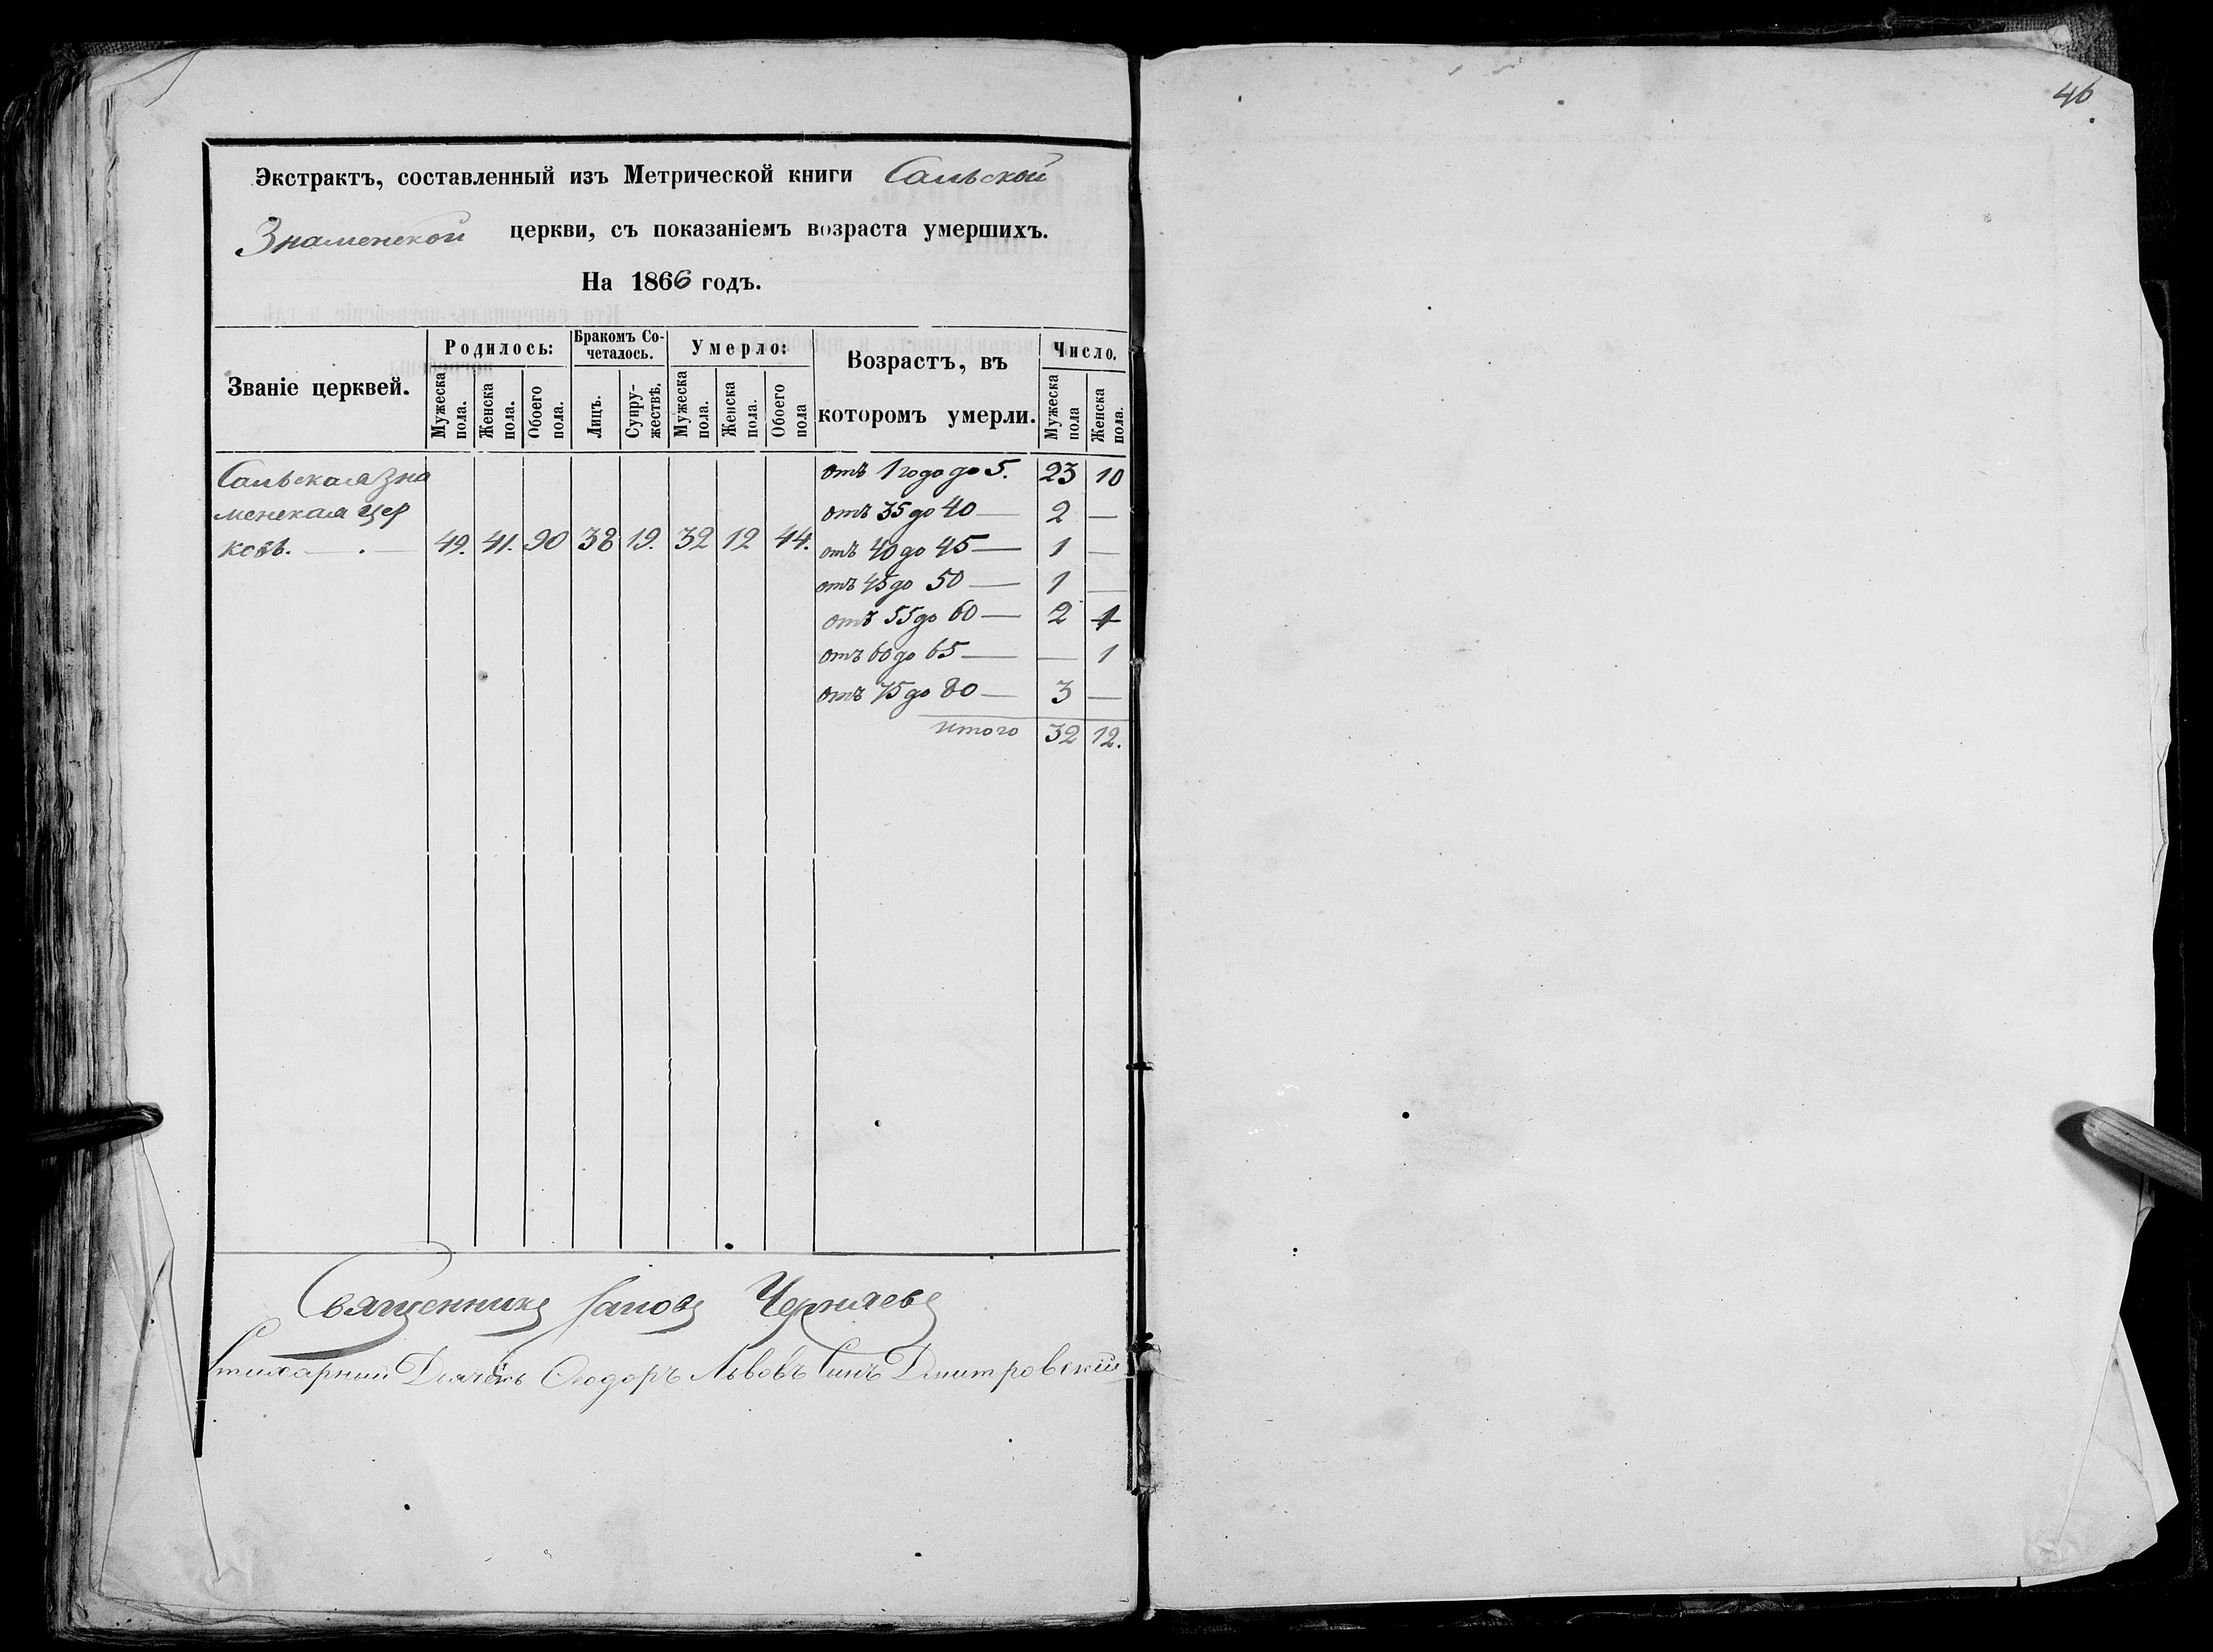 46
Экстрактъ, составленный изъ Метрической книги Сальской
Знаменской церкви, съ показаніемъ возраста умершихъ.
На 1866 годъ.
Званіе церквей.
Родилось:
Мужеска пола.
Женска пола.
Обоего пола.
Бракомъ Со-
четалось.
Лицъ.
Супру-
жествъ.
Умерло:
Мужеска пола.
Женска пола.
Обоего пола
Возрастъ, въ
которомъ умерли.
Число.
Мужеска пола
Женска пола.
Сальская Зна
менская цер
ковь. — . — 49. 41. 90 38 19. 32 12 44.
отъ 1 годо до 5. 23 10
отъ 35 до 40 — 2 —
отъ 40 до 45 — 1 —
отъ 45 до 50 — 1 —
отъ 55 до 60 — 2 1
отъ 60 до 65 — — 1
отъ 75 до 80 — 3 —
итого 32 12.
Священникъ Іаковъ Черняевъ
Стихарный Дьячекъ Ѳеодоръ Львовъ Сынъ Дмитровскій